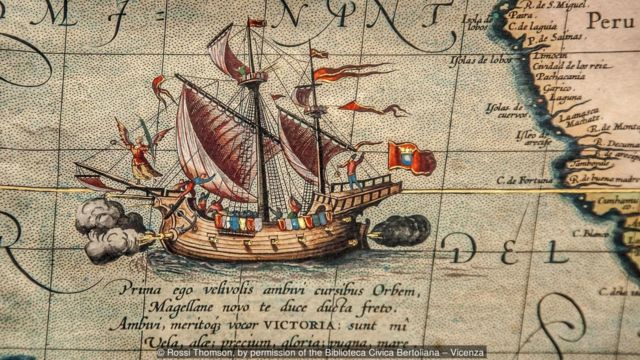 R. de S. Miguel.
Isola de lobos
Paira.
C. de laguia
Peru
P. de Samas.
Isolas de lobos.
Limocin
Cividad de los reiz
Pachacania
Garico.
Laguna
Isolas de cuervos.
Lanasca
Machate.
Isleo de arecife
R. de Monta
R. Decuma
Tambopal
C. de Fortuna
R. de buena madre
C. Blanco
DEL
Prima ego velivolis ambivi cursibus Orbem,
Magellane novo te duce ducta freto.
Ambivi, meritoq; vocor VICTORIA: sunt mî
Vela, alæ; precium, gloria; pugna, mare.
© Rossi Thomson, by permission of the Biblioteca Civica Bertoliana – Vicenza